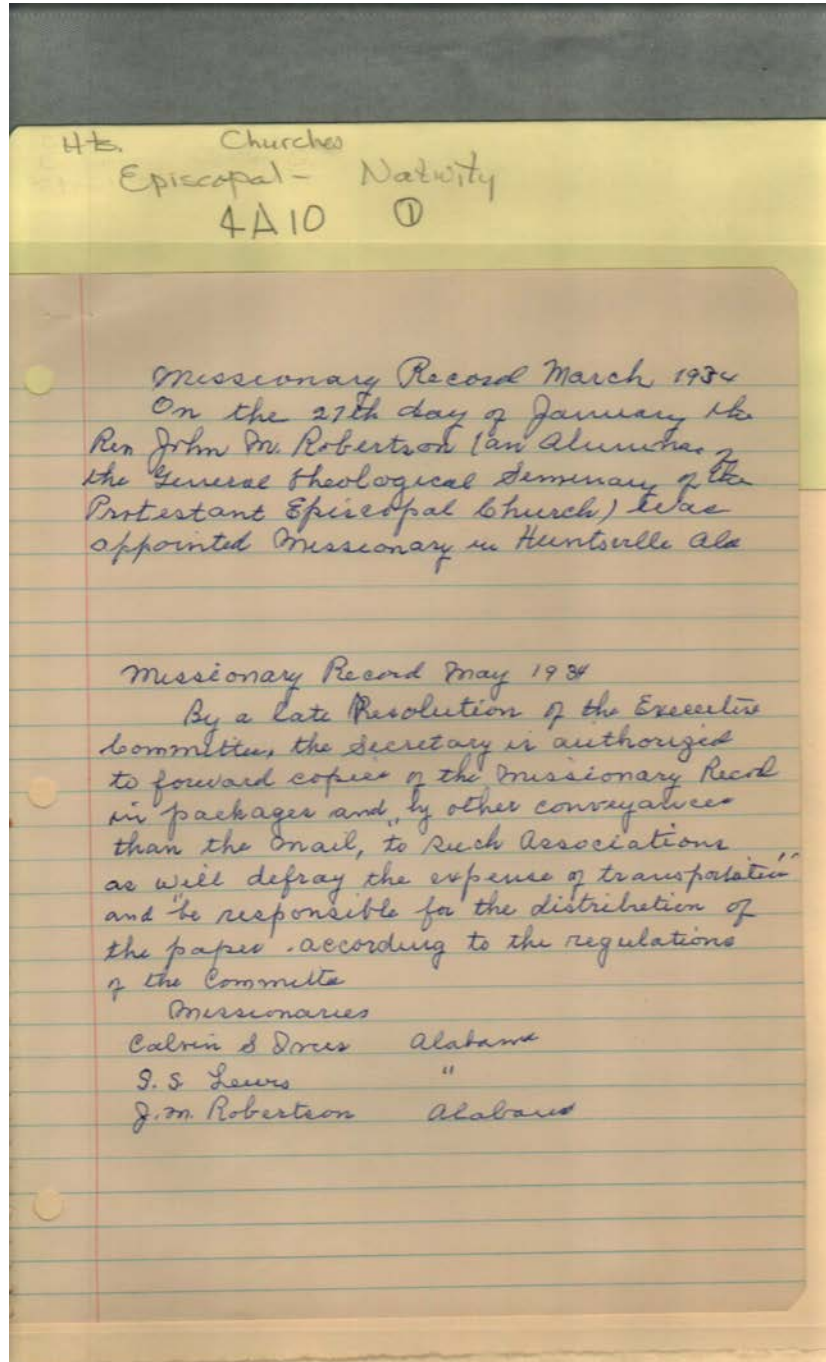 Hts. Churches
Episcopal - Nativity
4A10 ①
Missionary Record March 1934
On the 27th day of January the
Rev John M. Robertson (an Alumnae of
the General Theological Seminary of the
Protestant Episcopal Church) was
appointed Missionary in Huntsville Ala
Missionary Record May 1934
By a late Resolution of the Executive
Committee, the Secretary is authorized
to forward copies of the Missionary Record
in packages and, by other conveyances
than the Mail, to such Associations
as will defray the expense of transportation"
and "be responsible for the distribution of
the paper according to the regulations
of the Committe
Missionaries
Calvin S Alabama
S. S Lewis "
J. M. Robertson Alabama